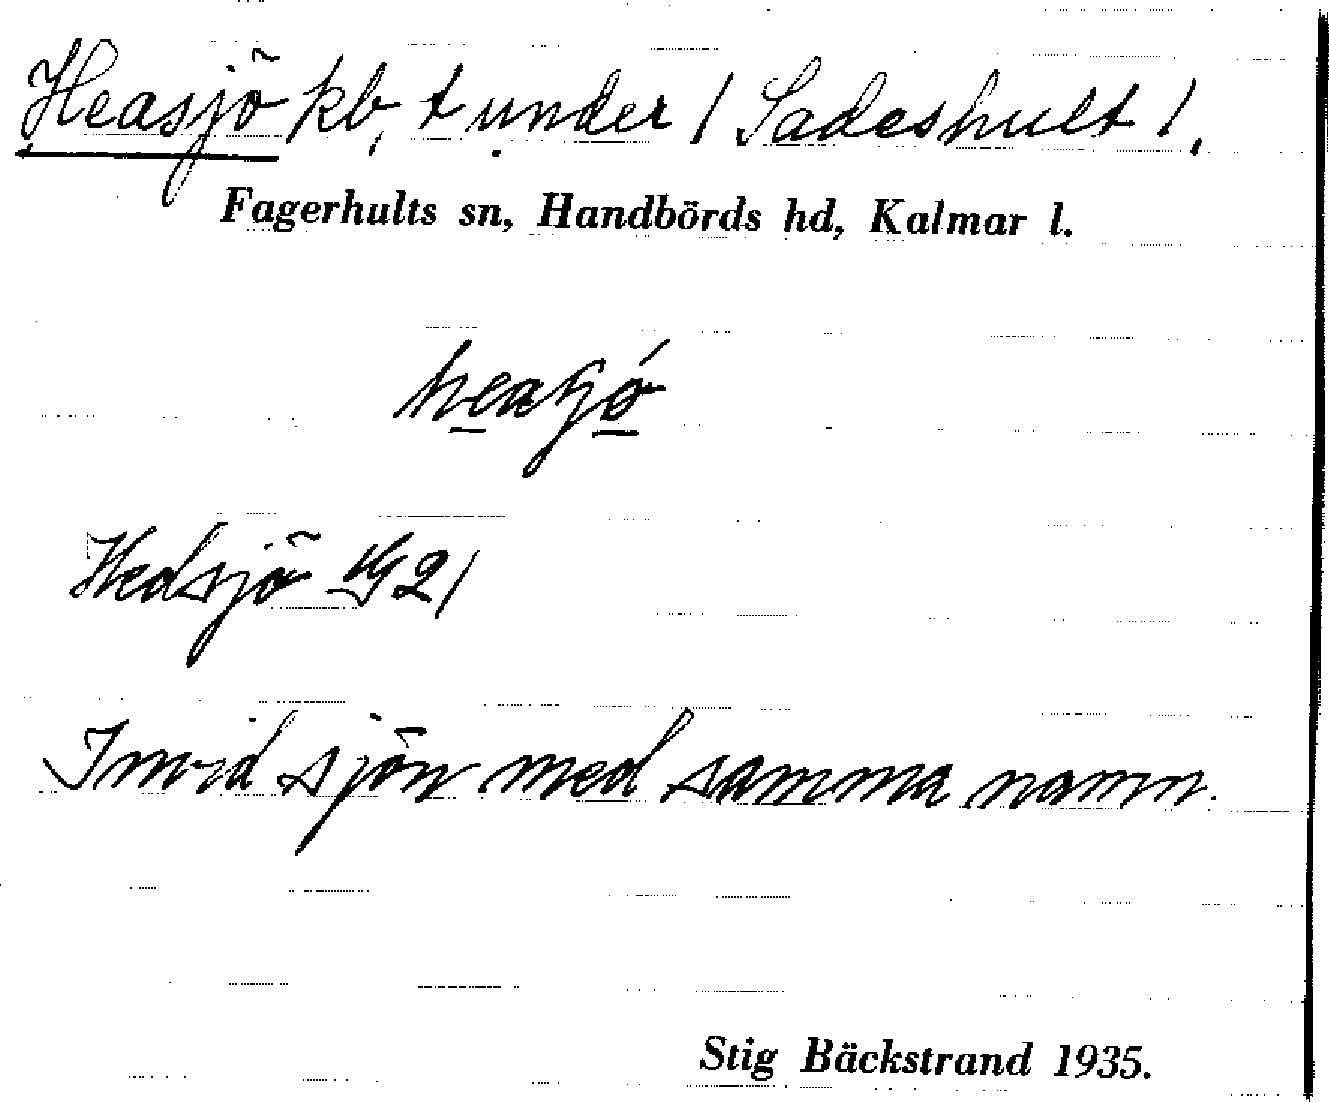 Heasjö kb, t under / Sadeshult /.
Fagerhults sn, Handbörds hd, Kalmar l.
Hedsjö
I m vid sjön med samma namn.
Stig Bäckstrand 1935.